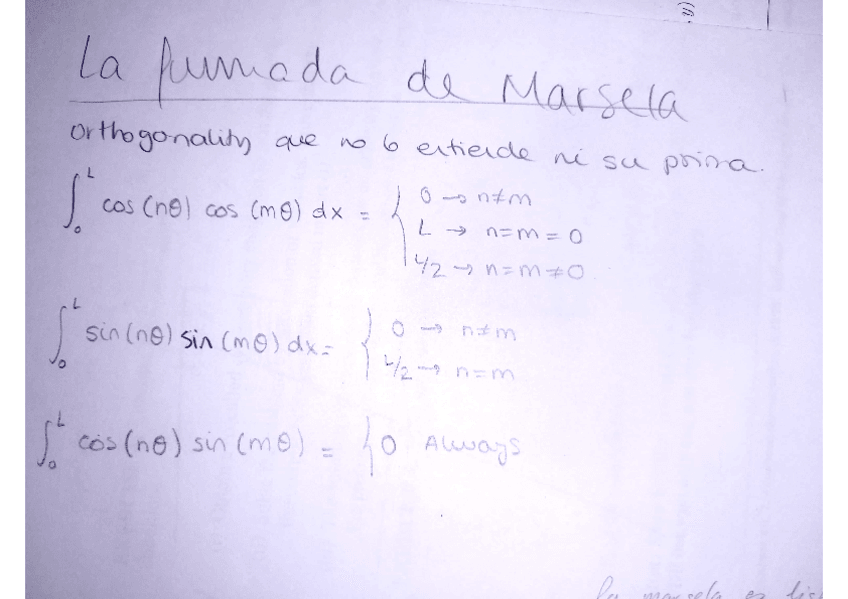 La fumada de Marsela
Orthogonality que no lo entiende ni su prima.
∫₀ᴸ cos(nθ) cos(mθ) dx = { 0 → n≠m
L → n=m=0
L/2 → n=m≠0
∫₀ᴸ sin(nθ) sin(mθ) dx = { 0 → n≠m
L/2 → n=m
∫₀ᴸ cos(nθ) sin(mθ) = { 0 Always
La marsela es